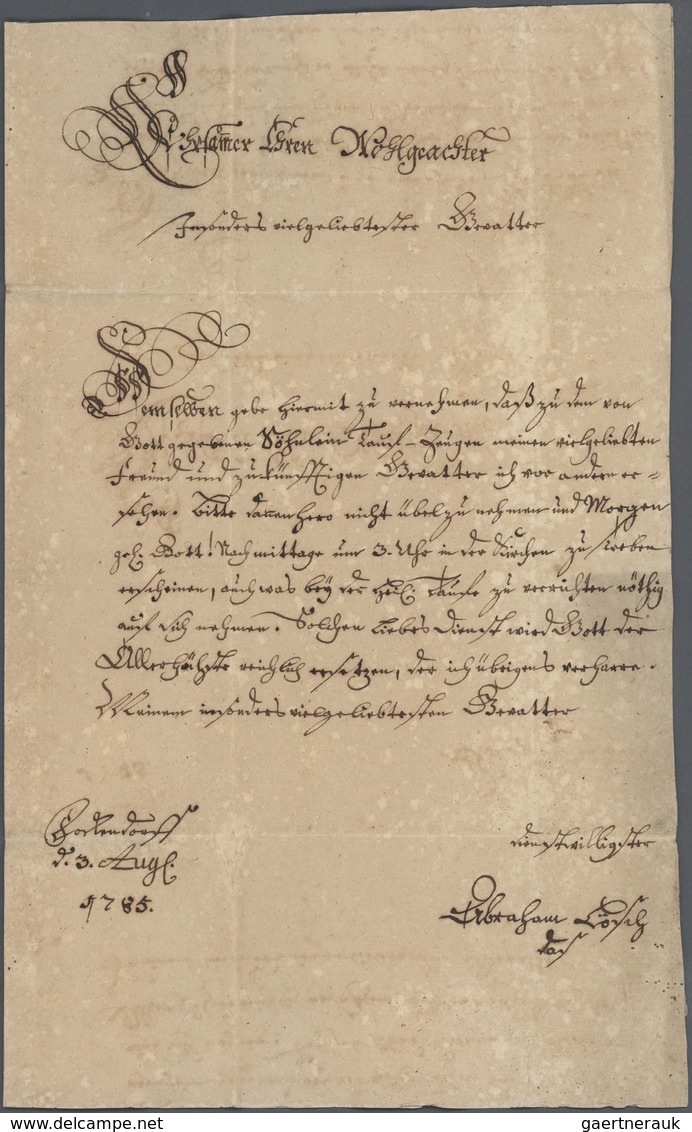 Ehrsamer Ehren Wohlgeachter
Insonders vielgeliebtester Gevatter
Demselben gebe hiermit zu vernehmen, daß zu dem von
Gott gegebenen Söhnlein Tauf-Zeugen meinen vielgeliebten
Freund und zukünfftigen Gevatter ich vor andern er-
sehen. Bitte dannenhero nicht übel zu nehmen und Morgen
geh. Gott! Nachmittage um 3. Uhr in der Kirchen zu
erscheinen, auch was bey der heil. Taufe zu verrichten nöthig
auf sich nehmen. Solchen Liebes Dienst wird Gott der
Allerhöchste reichlich ersetzen, der ich übrigens verharre.
Meinem insonders vielgeliebtesten Gevatter
d. 3. Aug.
1785.
dienstwilligster
Abraham
delcampe.net
gaertnerauk